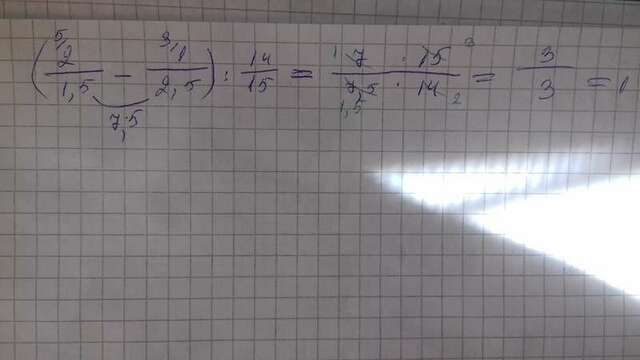 (5/ 2/1,5 - 3/ 1/2,5) : 14/15 = 1 7 · 15 3 / 7,5 · 14 2 = 3/3 = 1
7,5 1,5